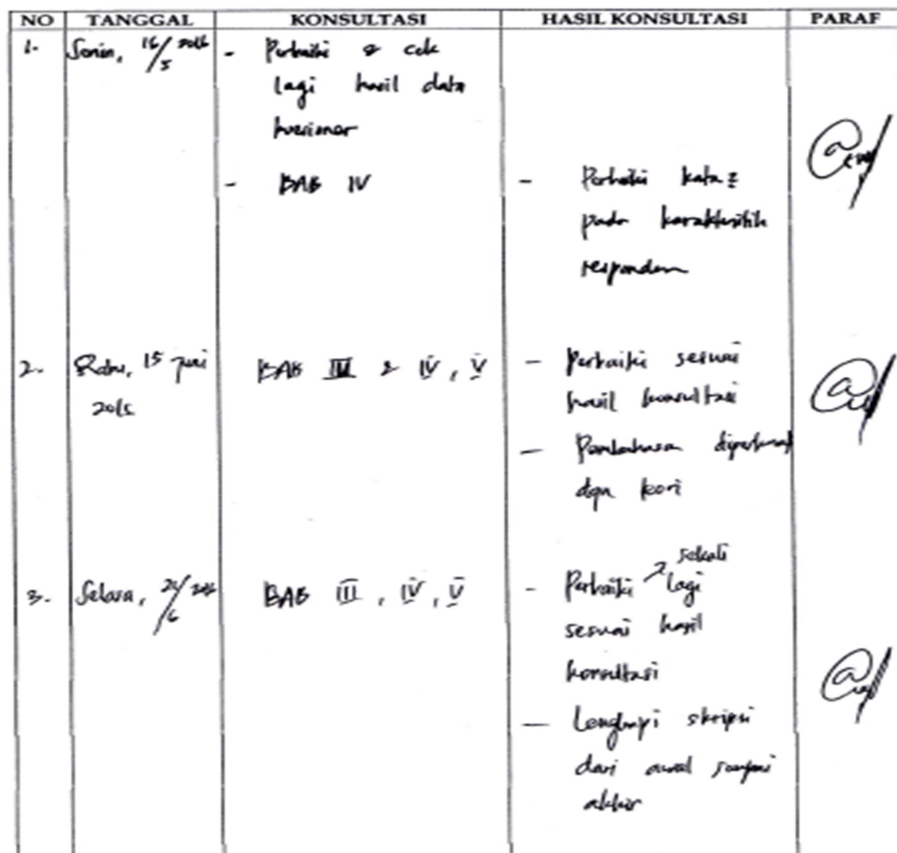 NO TANGGAL KONSULTASI HASIL KONSULTASI PARAF
1. Senin, 16/5 2016 - Perbaiki & cek
lagi hasil data
kuesioner
- BAB IV - Perbaiki kata2
pada karakteristik
responden
2. Rabu, 15 Juni BAB III & IV, V - Perbaiki sesuai
hasil konsultasi
- Pembahasan
dgn teori
3. Selasa, BAB III, IV, V - Perbaiki sekali lagi
sesuai hasil
konsultasi
- Lengkapi skripsi
dari awal sampai
akhir